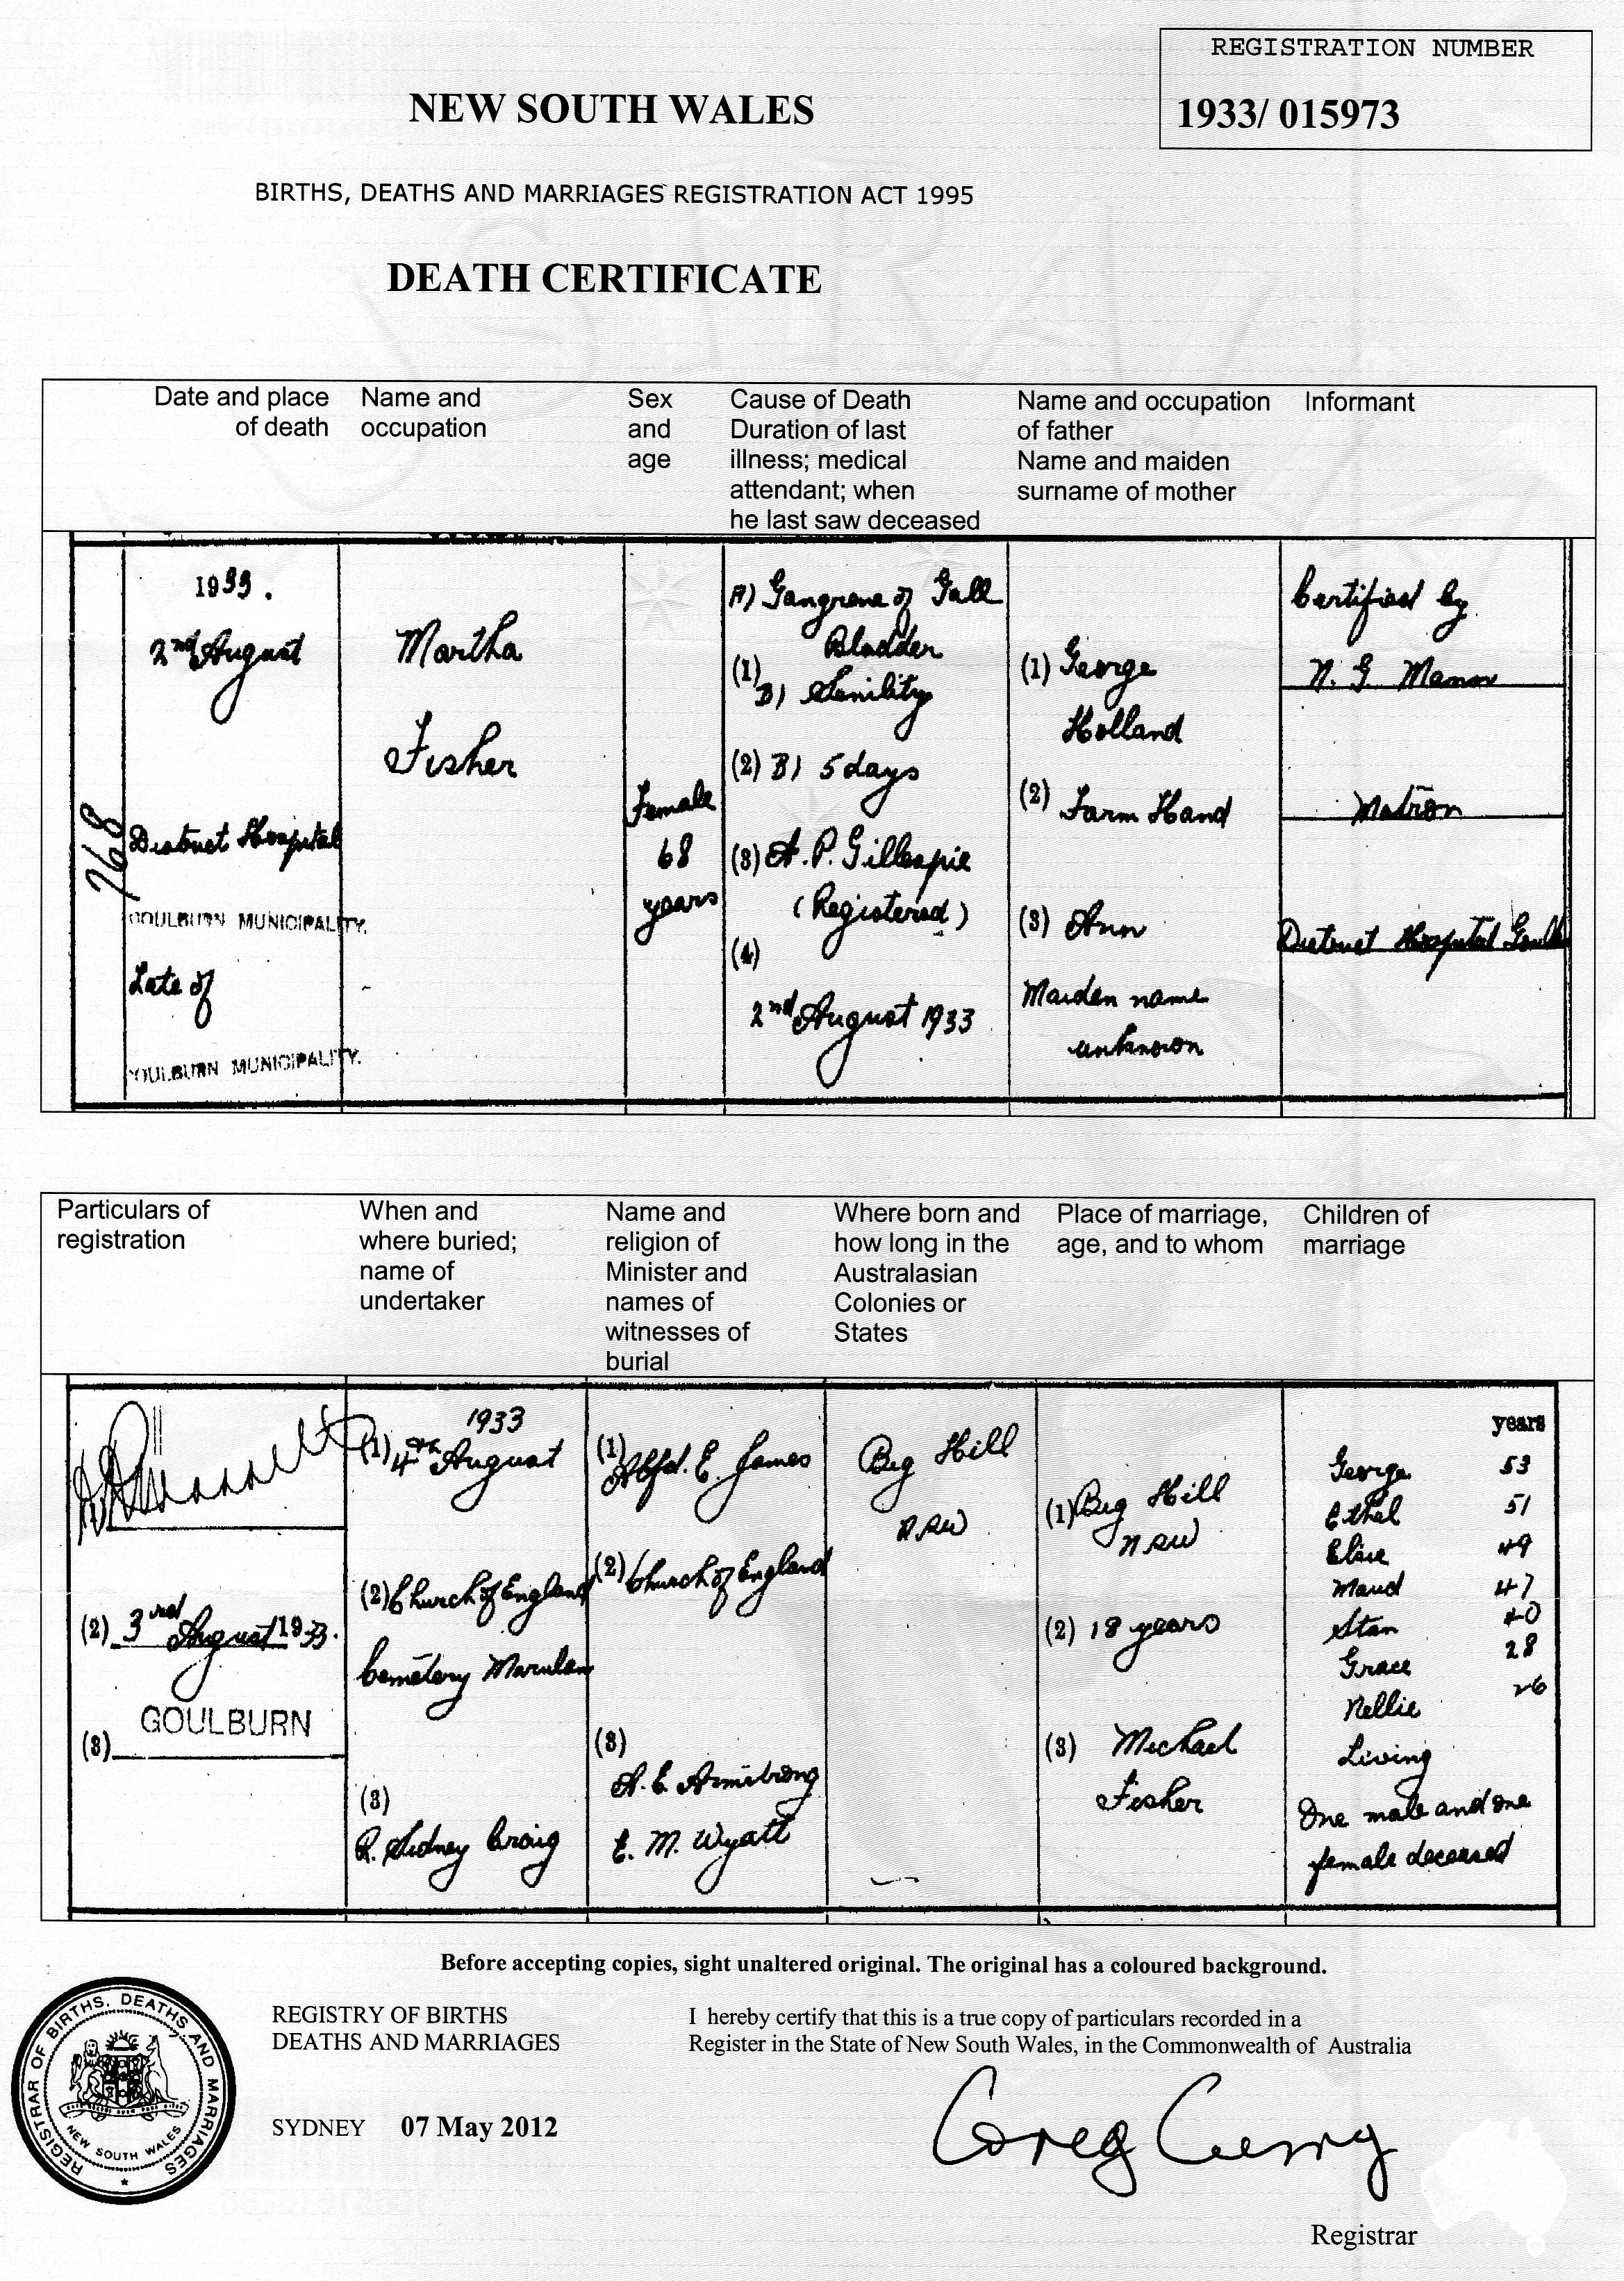 REGISTRATION NUMBER
1933/ 015973
NEW SOUTH WALES
BIRTHS, DEATHS AND MARRIAGES REGISTRATION ACT 1995
DEATH CERTIFICATE
Date and place
of death
Name and
occupation
Sex
and
age
Cause of Death
Duration of last
illness; medical
attendant; when
he last saw deceased
Name and occupation
of father
Name and maiden
surname of mother
Informant
768
1933.
2nd August
District Hospital
GOULBURN MUNICIPALITY.
Late of
OULBURN MUNICIPALITY.
Martha
Fisher
Female
68
years
A) Gangrene of Gall
Bladder
(1)
B) Senility
(2) B) 5 days
(3) A. P. Gillespie
(Registered)
(4)
2nd August 1933
(1) George
Holland
(2) Farm Hand
(3) Ann
Maiden name
unknown
Certified by
N. G. Mann
Matron
District Hospital
Particulars of
registration
When and
where buried;
name of
undertaker
Name and
religion of
Minister and
names of
witnesses of
burial
Where born and
how long in the
Australasian
Colonies or
States
Place of marriage,
age, and to whom
Children of
marriage
(2) 3rd August 1933.
GOULBURN
(3)
1933
(1) 4th August
(2) Church of England
Cemetery Marulan
(3)
R. Sidney Craig
(1) Alfd. E. James
(2) Church of England
(3)
A. E. Armstrong
E. M. Wyatt
Big Hill
NSW
(1) Big Hill
NSW
(2) 18 years
(3) Michael
Fisher
years
George 53
Ethel 51
Elsie 49
Maud 47
Stan 40
Grace 28
Nellie 26
Living
One male and one
female deceased
Before accepting copies, sight unaltered original. The original has a coloured background.
REGISTRAR OF BIRTHS, DEATHS AND MARRIAGES
NEW SOUTH WALES
REGISTRY OF BIRTHS
DEATHS AND MARRIAGES
SYDNEY 07 May 2012
I hereby certify that this is a true copy of particulars recorded in a
Register in the State of New South Wales, in the Commonwealth of Australia
Greg Curry
Registrar